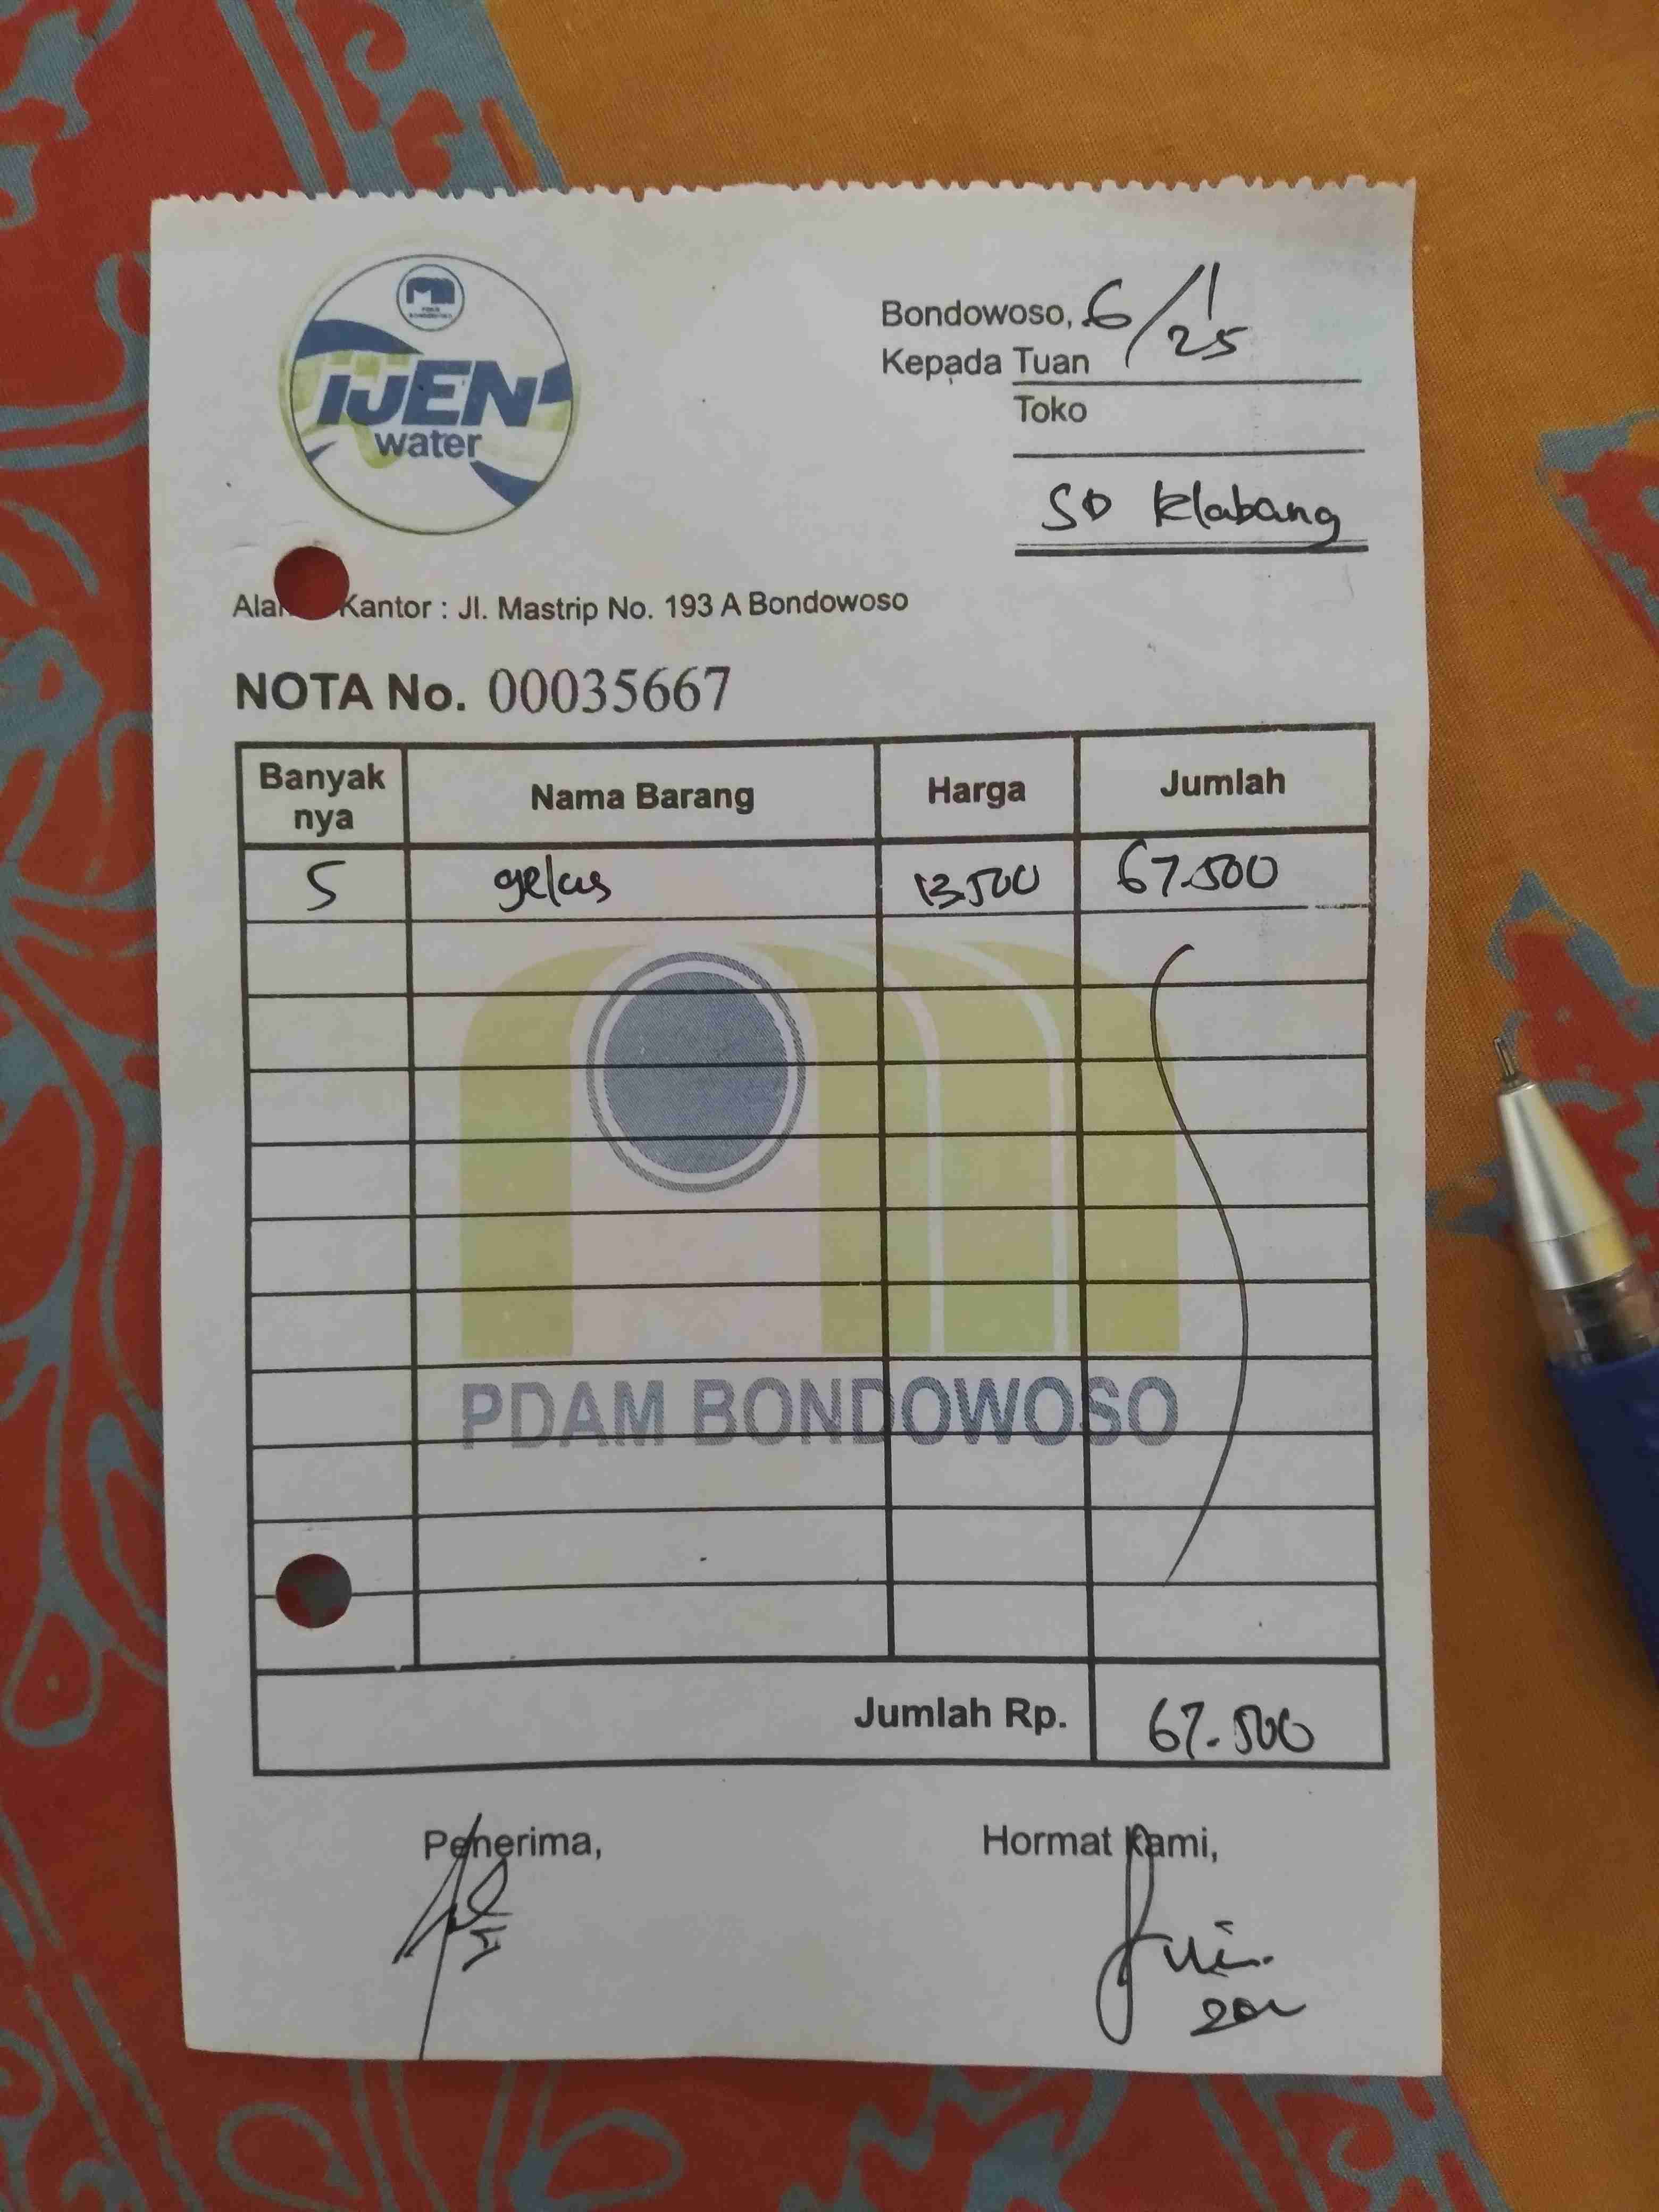 IJEN
water
Bondowoso, 6/1/25
Kepada Tuan
Toko
SD Klabang
Kantor : Jl. Mastrip No. 193 A Bondowoso
NOTA No. 00035667
Banyak nya Nama Barang Harga Jumlah
5 gelas 13.500 67.500
PDAM BONDOWOSO
Jumlah Rp. 67.500
Penerima, Hormat Kami,